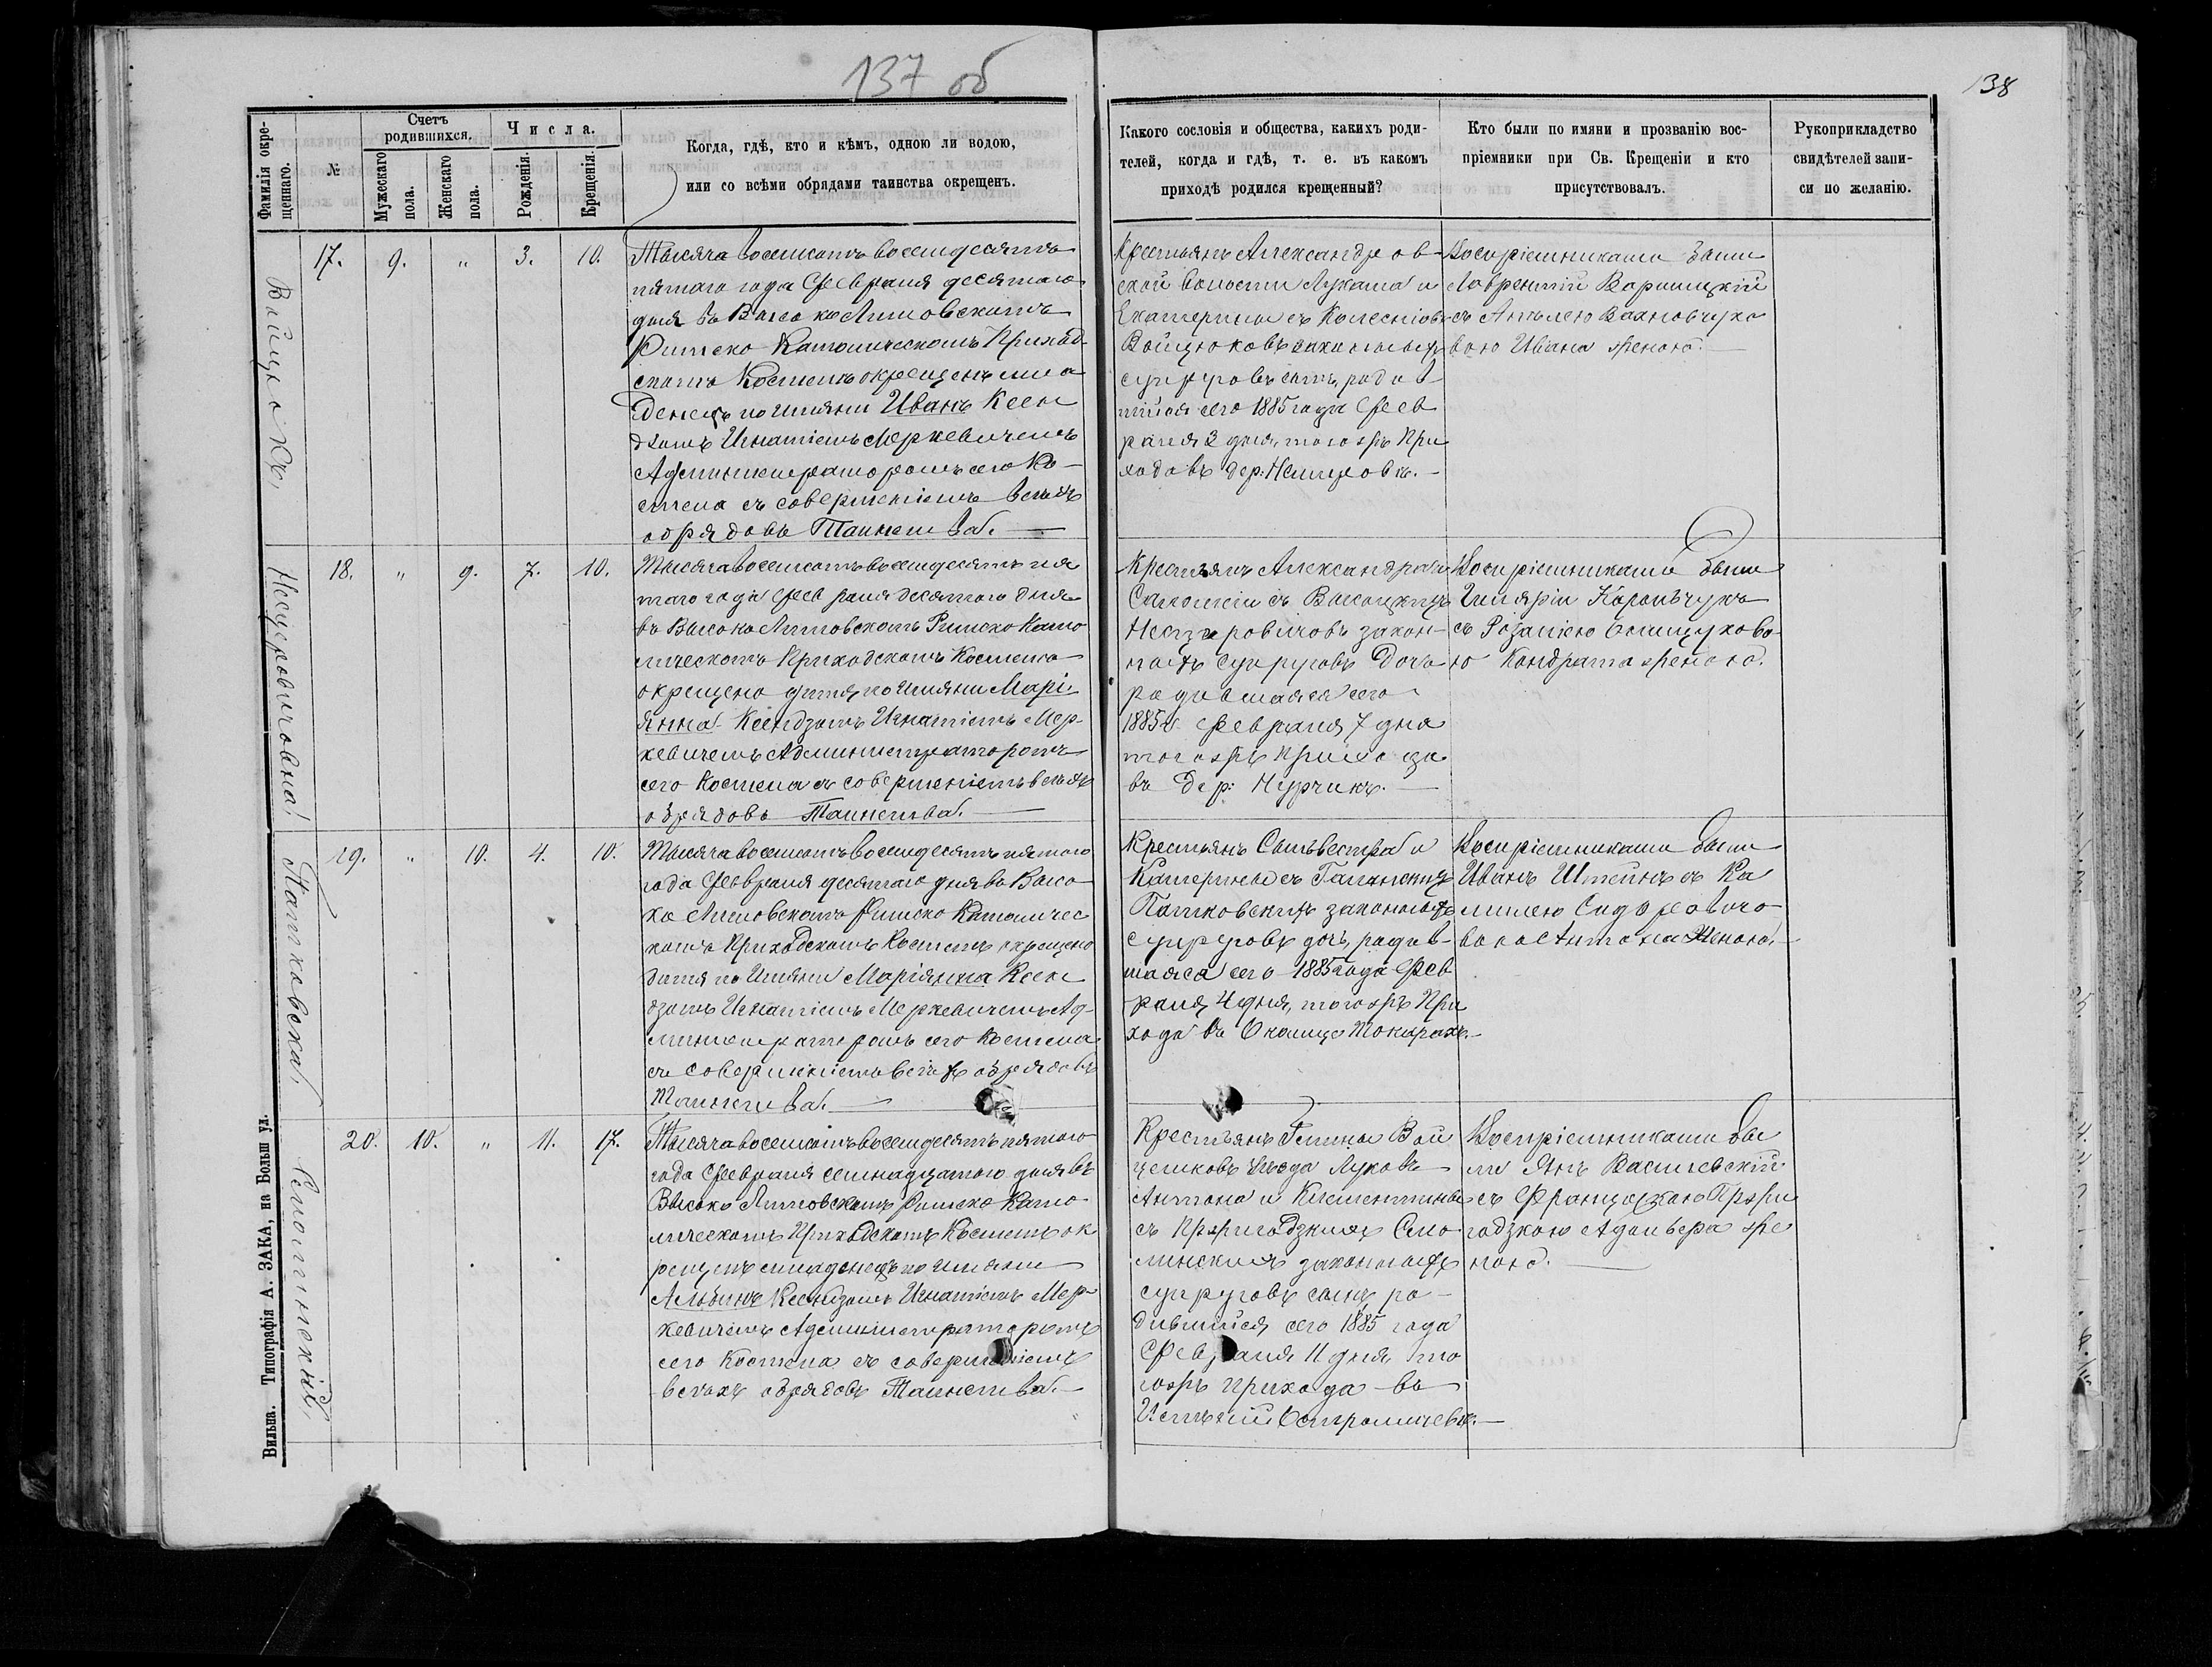 137 об
138
Фамилія окре-
щеннаго.
№
Счетъ
родившихся.
Мужескаго
пола.
Женскаго
пола.
Числа.
Рожденія.
Крещенія.
Когда, гдѣ, кто и кѣмъ, одною ли водою,
или со всѣми обрядами таинства окрещенъ.
Какого сословія и общества, какихъ роди-
телей, когда и гдѣ, т. е. въ какомъ
приходѣ родился крещенный?
Кто были по имяни и прозванію вос-
пріемники при Св. Крещеніи и кто
присутствовалъ.
Рукоприкладство
свидѣтелей запи-
си по желанію.
Войцюкъ,
17. 9. " 3. 10.
Тысяча восемсотъ восемдесятъ
пятаго года Февраля десятаго
дня въ Высоко Литовскомъ
Римско Католическомъ Приход-
скомъ Костелѣ окрещенъ мла
денецъ по имяни Иванъ Ксен
дзомъ Игнатіемъ Меркевичемъ
Администраторомъ сего Ко-
стела съ совершеніемъ всѣхъ
обрядовъ Таинства.
Крестьянъ Александров-
ской волости Лукаша и
Екатерины съ
Войцюковъ законныхъ
супруговъ сынъ, родив
шійся сего 1885 года Фев
раля 3 дня, тогожъ При
хода въ дер: Немеровкѣ.
Воспріемниками были
Лаврентій
съ
вою Ивана женою.
Несцеровичовна.
18. " 9. 7. 10.
Тысяча восемсотъ восемдесятъ пя
таго года Февраля десятаго дня
въ Высоко Литовскомъ Римско Като
лическомъ Приходскомъ Костелѣ
окрещено дитя по имяни Марі-
янна Ксендзомъ Игнатіемъ Мер-
кевичемъ Администраторомъ
сего Костела съ совершеніемъ всѣхъ
обрядовъ Таинства.
Крестьянъ Александра и
Саломеіи съ Высоцкихъ
Несцеровичовъ закон-
ныхъ супруговъ Дочь
родившаяся сего
1885 г. Февраля 7 дня
тогожъ прихода
въ дер: Нурчикъ.
Воспріемниками были
съ Розаліею
ю Кондрата женою.
Патковска,
19. " 10. 4. 10.
Тысяча восемсотъ восемдесятъ пятаго
года Февраля десятаго дня въ Высо
ко Литовскомъ Римско Католичес
комъ Приходскомъ Костелѣ окрещено
дитя по Имяни Маріянна Ксен
дзомъ Игнатіемъ Меркевичемъ Ад-
министраторомъ сего Костела
съ совершеніемъ всѣхъ обрядовъ
Таинства.
Крестьянъ Сильвестра и
Катерины съ
Патковскихъ законныхъ
супруговъ дочь, родив-
шаяся сего 1885 года Фев
раля 4 дня, тогожъ При
хода въ Околицѣ Токарахъ.
Воспріемниками были
Иванъ Штейнъ съ Ка
милею Сидоровичо
вою Антона Женою.
Смолинскій,
20. 10. " 11. 17.
Тысяча восемсотъ восемдесятъ пятаго
года Февраля семнадцатаго дня въ
Высоко Литовскомъ Римско Като
лическомъ Приходскомъ Костелѣ ок
рещенъ младенецъ по имяни
Альбинъ Ксендзомъ Игнатіемъ Мер-
кевичемъ Администраторомъ
сего Костела съ совершеніемъ
всѣхъ обрядовъ Таинства.
Крестьянъ Гмины Вой
цешковъ уѣзда Луковъ
Антона и Клементины
съ Пржигодзкихъ Смо
линскихъ законныхъ
супруговъ сынъ, ро-
дившійся сего 1885 года
Февраля 11 дня, то
гожъ прихода въ
Имѣніи Остромичевѣ.
Воспріемниками бы
ли Янъ Василевскій
съ Францишкою Пржи
годзкою Адольфа же
ною.
Вильна. Типографія А. ЗАКА, на Больш ул.